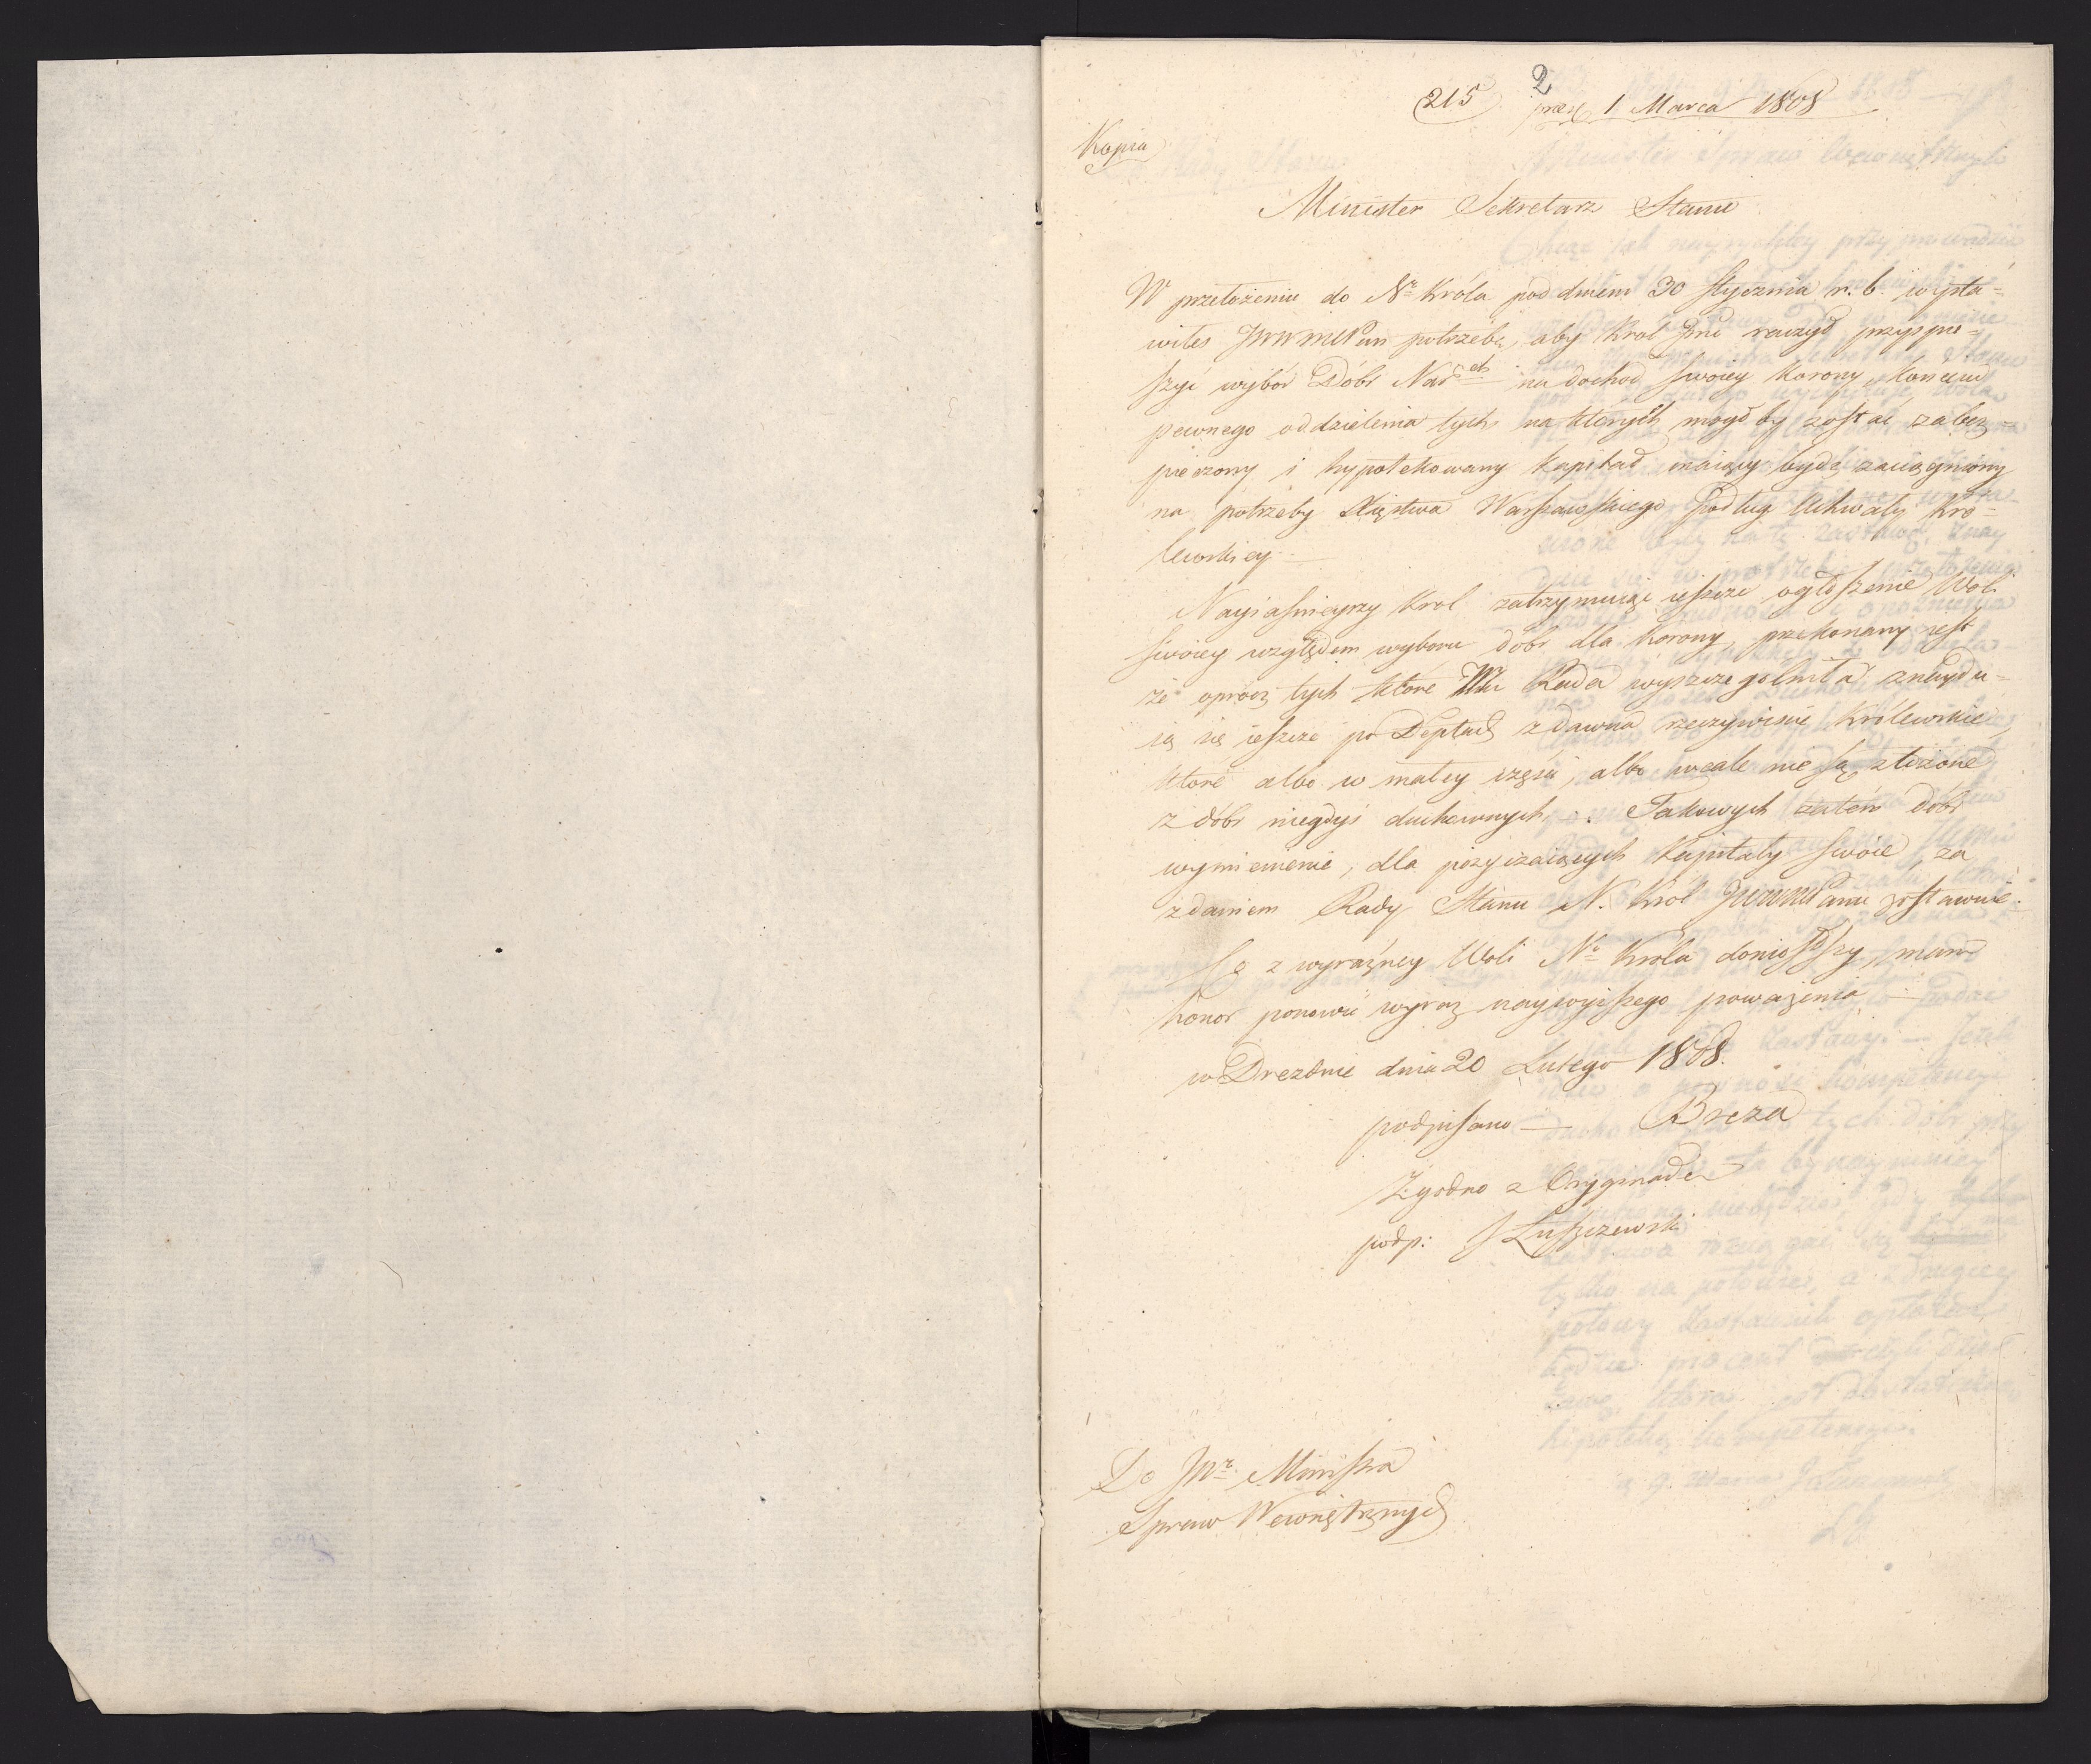 215 2
praes 1 Marca 1808
Kopia
Minister Sekretarz Stanu
W przełożeniu do N. Króla pod dniem 30 Stycznia r. b. wysta=
wiłeś JWWMPan potrzebę, aby Krol Jmć raczył przyspie=
szyć wybór Dóbr Nar ch na dochod swoiey Korony, koncem
pewnego oddzielenia tych, na których mógł by zostać zabez=
pieczony i hypotekowany Kapitał maiący bydź zaciągniony
na potrzeby Xięstwa Warszawskiego podług Uchwały Kró=
lewskiey. —
Nayiaśnieyszy Krol zatrzymuiąc ieszcze ogłoszenie Woli
swoiey względem wyboru dóbr dla Korony, przekonany iest
że oprocz tych które Rada wyszczegolniła znaydu=
ią się ieszcze po Deptach zdawna rzeczywiście Królewskie,
które albo w małey części, albo wcale nie są złożone
z dóbr niegdyś duchownych. Takowych zatem dóbr
wymienienie, dla pożyczaiących Kapitały swoie za
zdaniem Rady Stanu N. Król JWWMPanu zostawuie.
To z wyraźney Woli N. Króla doniosłszy, mam
honor ponowić wyraz naywyższego poważenia —
w Dreznie dnia 20 Lutego 1808.
podpisano — Breza
Zgodno z Oryginałem
podp: J Łuszczewski
Do JW. Ministra
Spraw Wewnętrznych